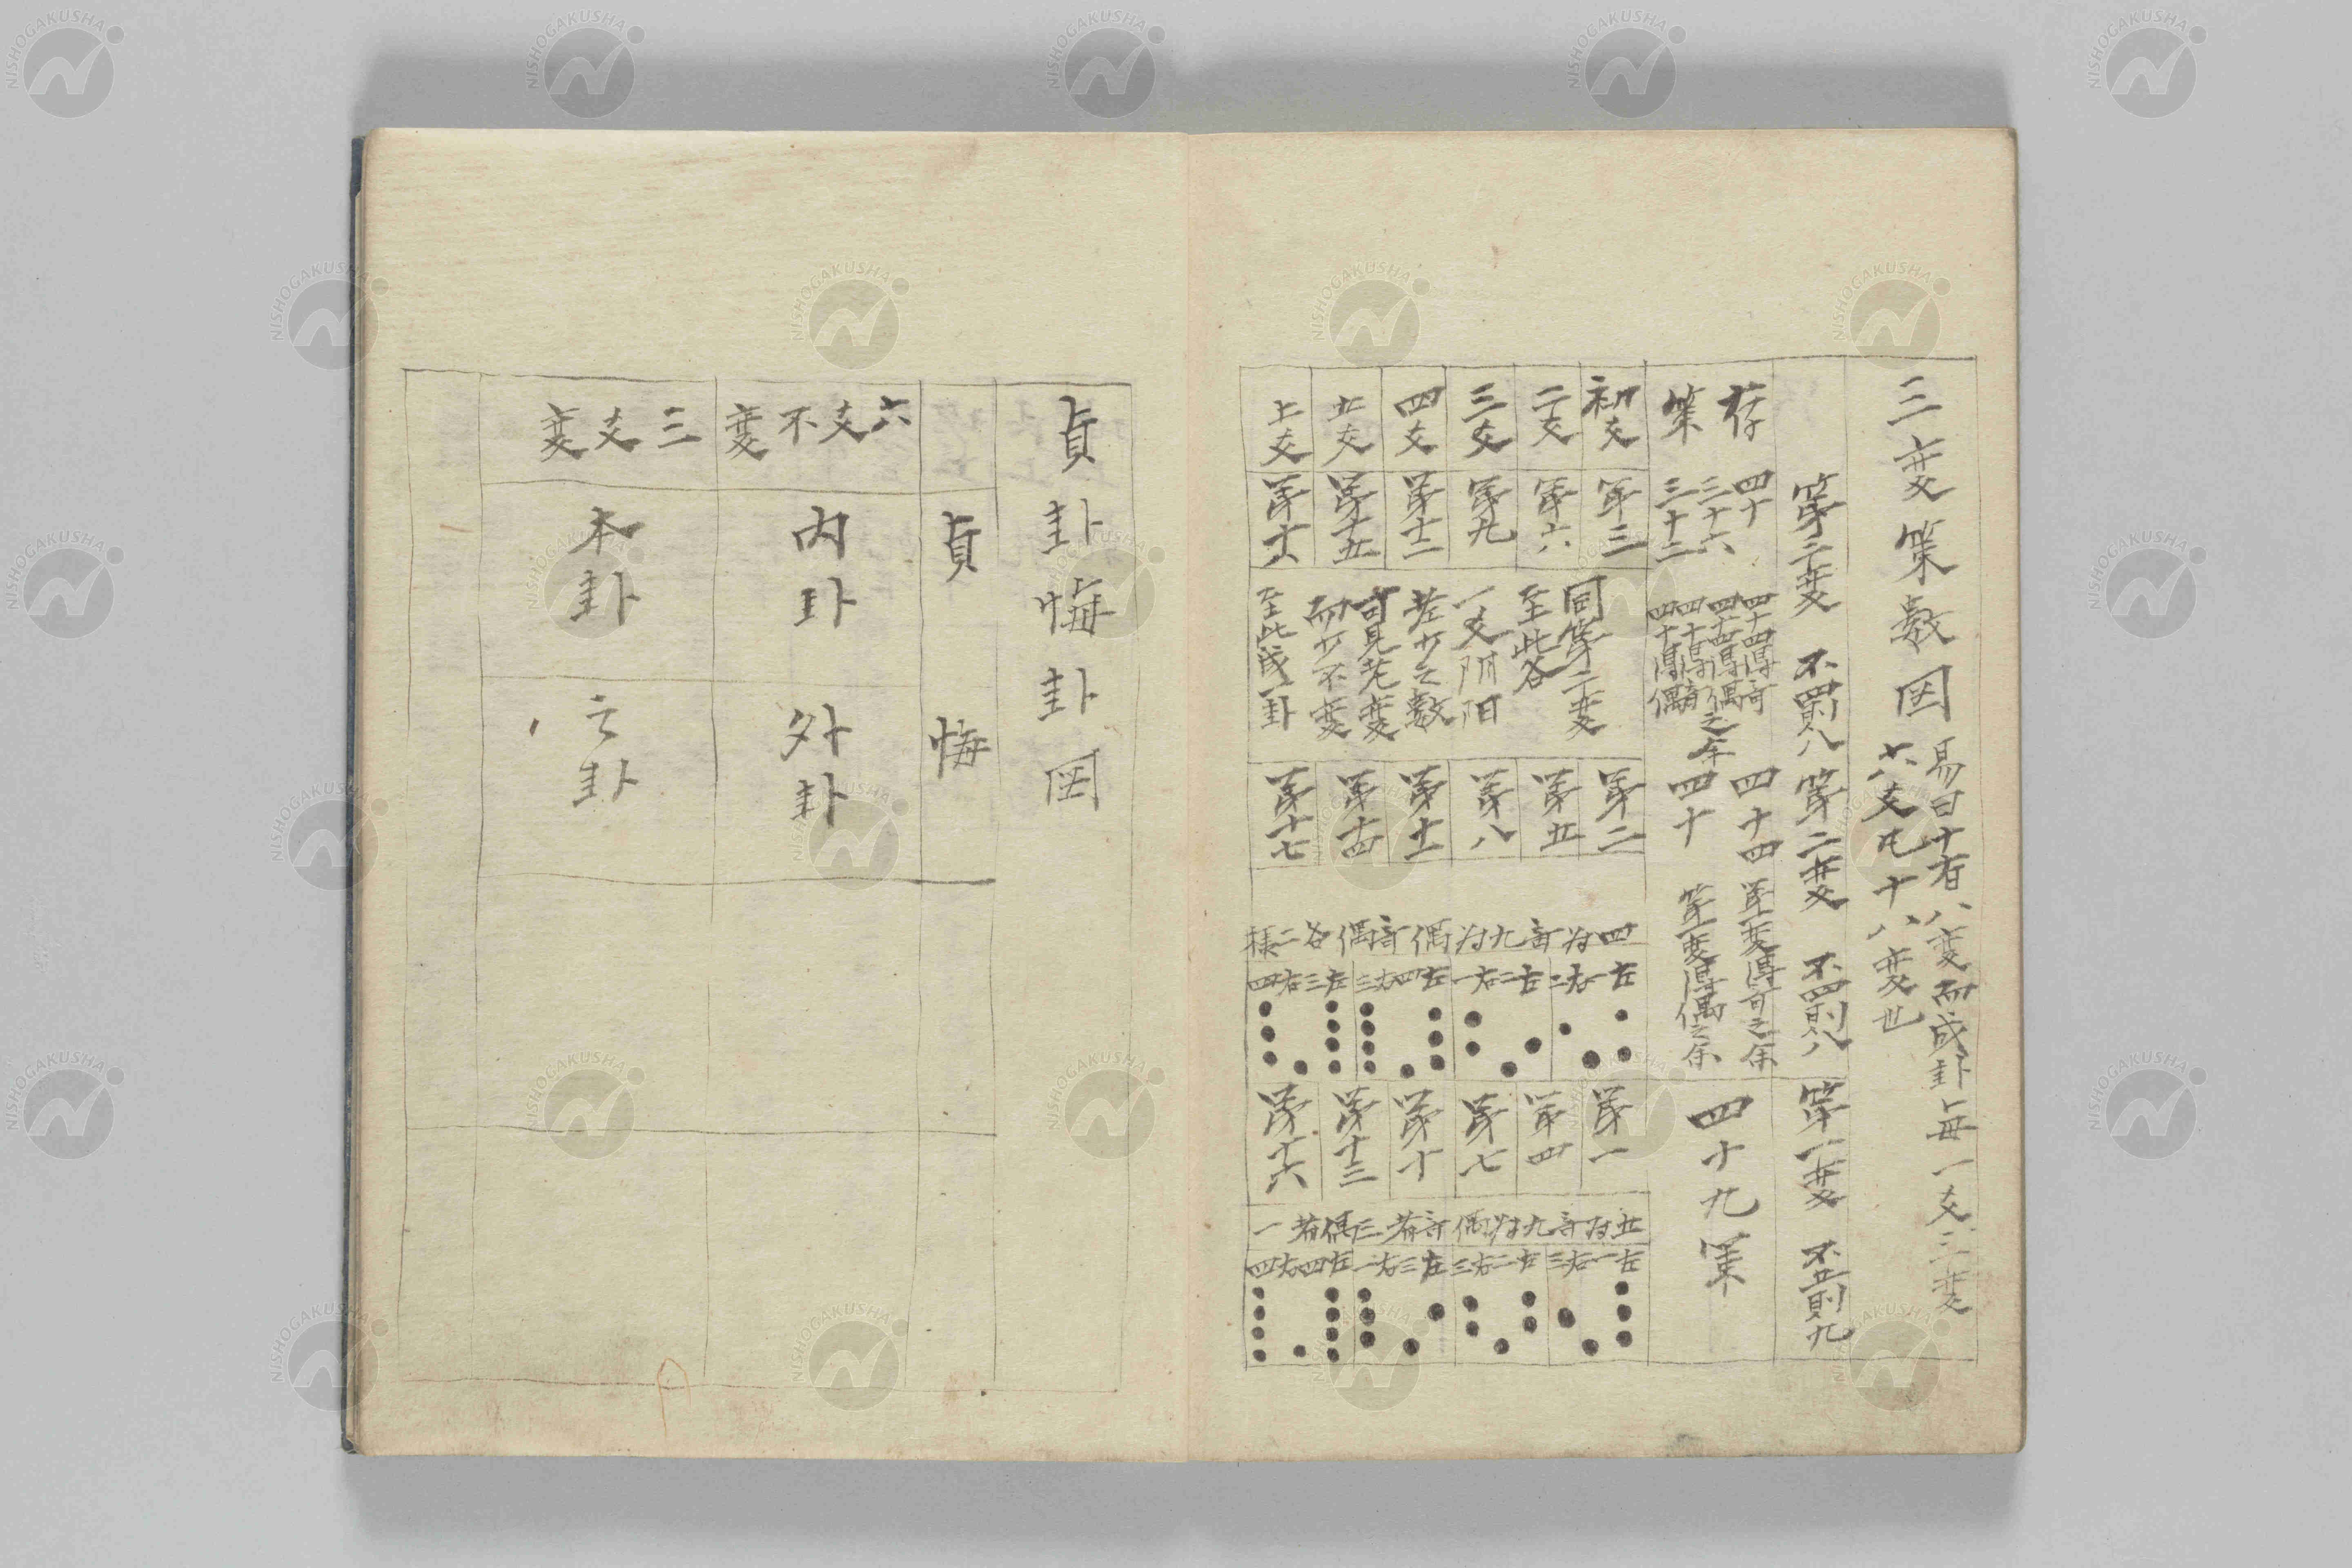 三変策數図
易曰十有八変而成卦毎一爻三変
六爻凡十八変也
第三変 不四則八 第二変 不四則八 第一変 不五則九
存策
四十
三十六
三十二
四十四得奇
四十四得偶
四十得奇
四十得偶
之余
四十四 第一変得奇之余
四十 第一変得偶之余
四十九策
初爻 二爻 三爻 四爻 五爻 上爻
第三 第六 第九 第十二 第十五 第十八
同第二変
至此各
一爻阴阳
老少之數
可見老変
而少不変
至此成一卦
第二 第五 第八 第十一 第十四 第十七
四为奇九为偶奇偶各二様
左一右二 左二右一 左四右三 左三右四
第一 第四 第七 第十 第十三 第十六
五为奇九为偶奇者三偶者一
左一右三 左二右二 左三右一 左四右四
貞卦悔卦図
貞 悔
六爻不変 内卦 外卦
三爻変 本卦 之卦
NISHOGAKUSHA